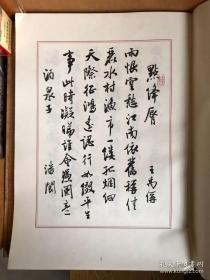 點絳脣 王禹偁
雨恨雲愁江南依舊稱佳
麗水村漁市一縷孤烟細
天際征鴻遙認行如綴平生
事此時凝睇誰會憑闌意
酒泉子 潘閬